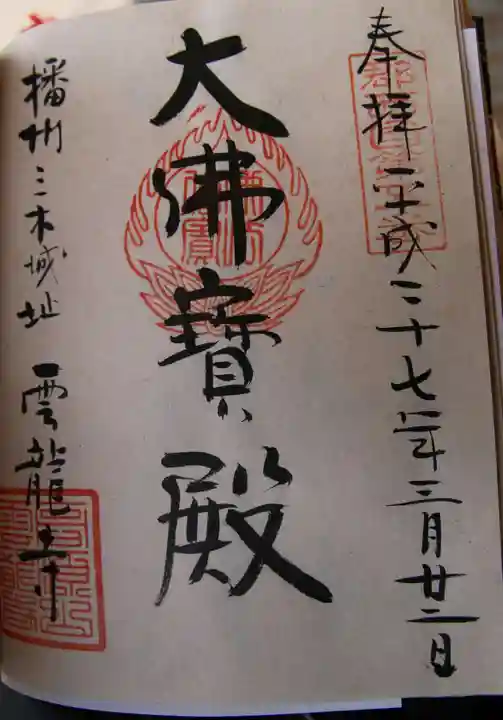 奉拝 平成二十七年三月廿二日
大佛寶殿
播州三木城址 雲龍寺